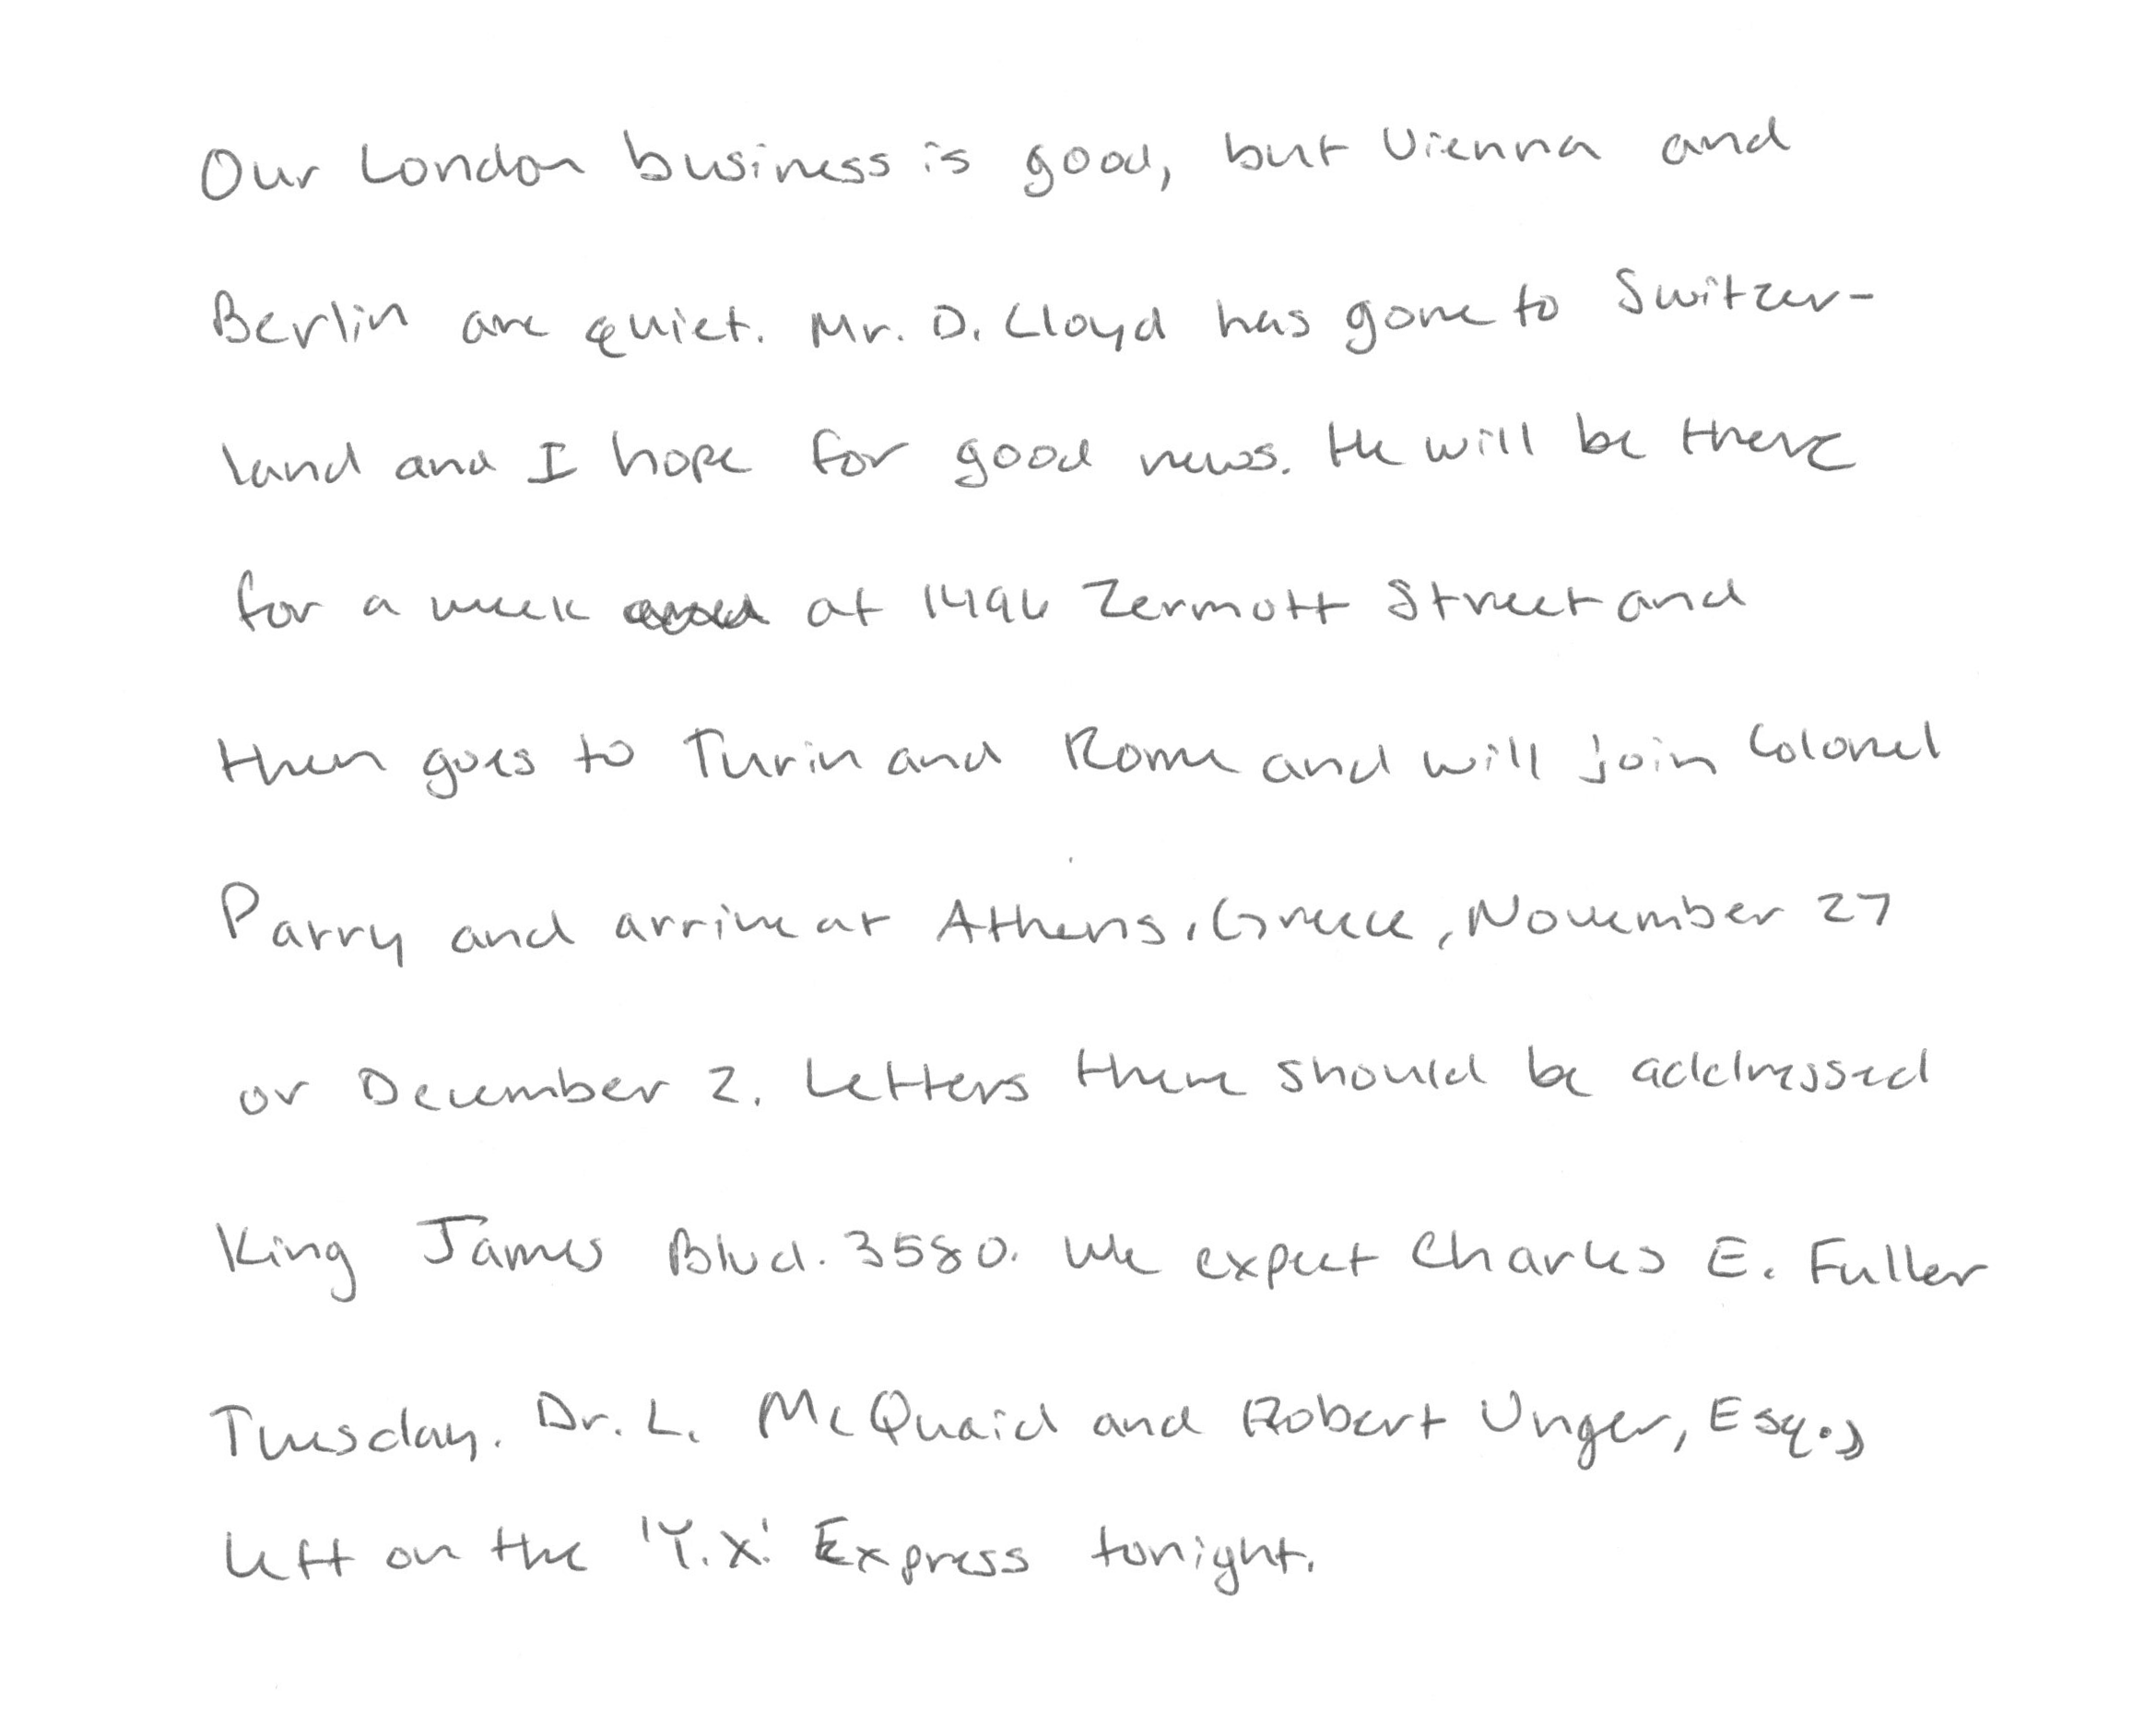 Our London business is good, but Vienna and
Berlin are quiet. Mr. D. Lloyd has gone to Switzer-
land and I hope for good news. He will be there
for a week at 1496 Zermott Street and
then goes to Turin and Rome and will join Colonel
Parry and arrive at Athens, Greece, November 27
or December 2. Letters there should be addressed
King James Blvd. 3580. We expect Charles E. Fuller
Tuesday. Dr. L. McQuaid and Robert Unger, Esq.,
left on the 'Y.X.' Express tonight.